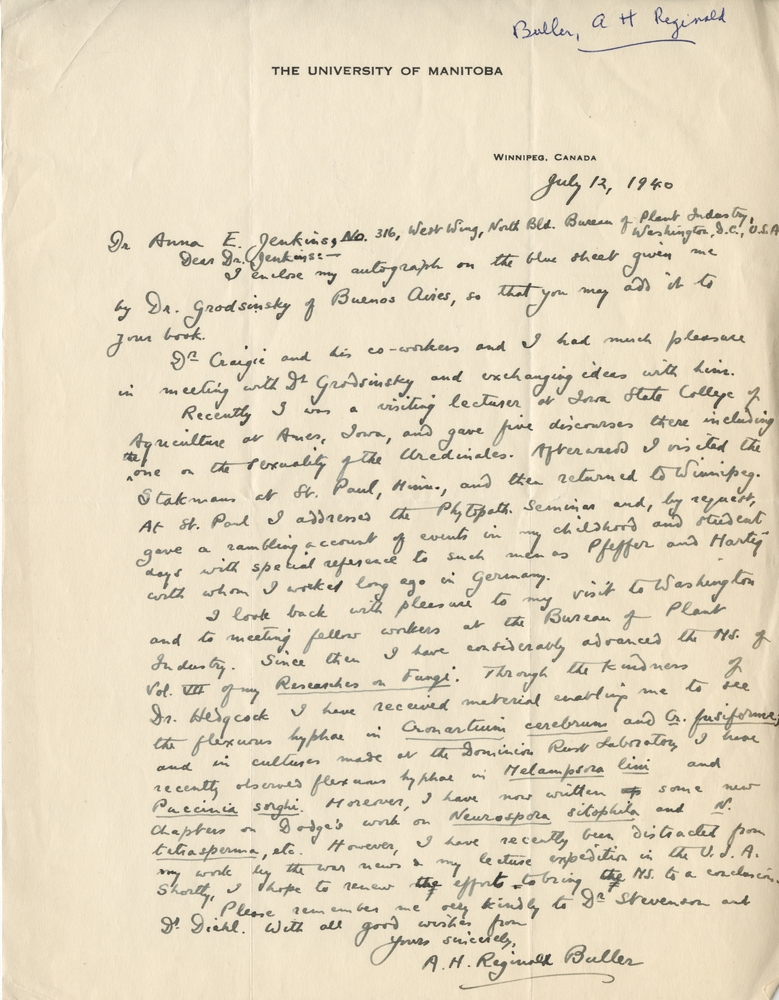 Buller, A H Reginald
THE UNIVERSITY OF MANITOBA
WINNIPEG, CANADA
July 12, 1940
Dr Anna E. Jenkins, No. 316, West Wing, North Bld. Bureau of Plant Industry,
Washington, D.C., U.S.A
Dear Dr. Jenkins:—
I enclose my autograph on the blue sheet given me
by Dr. Grodsinsky of Buenos Aires, so that you may add it to
your book.
Dr Craigie and his co-workers and I had much pleasure
in meeting with Dr Grodsinsky and exchanging ideas with him.
Recently I was a visiting lecturer at Iowa State College of
Agriculture at Ames, Iowa, and gave five discourses there including
the one on the sexuality of the Uredinales. Afterwards I visited the
Stakmans at St. Paul, Minn., and then returned to Winnipeg.
At St. Paul I addressed the Phytopath. Seminar and, by request,
gave a rambling account of events in my childhood and student
days with special reference to such men as Pfeffer and Hartig
with whom I worked long ago in Germany.
I look back with pleasure to my visit to Washington
and to meeting fellow workers at the Bureau of Plant
Industry. Since then I have considerably advanced the MS. of
Vol. VII of my Researches on Fungi. Through the kindness of
Dr. Hedgcock I have received material enabling me to see
the flexuous hyphae in Cronartium cerebrum and Cr. fusiforme,
and in cultures made at the Dominion Rust Laboratory I have
recently observed flexuous hyphae in Melampsora lini and
Puccinia sorghi. Moreover, I have now written some new
Chapters on Dodge's work on Neurospora sitophila and N.
tetrasperma, etc. However, I have recently been distracted from
my work by the war news & my lecture expedition in the U.S.A.
Shortly, I hope to renew the efforts to bring the MS. to a conclusion.
Please remember me very kindly to Dr Stevenson and
Dr Diehl. With all good wishes from
Yours sincerely,
A. H. Reginald Buller